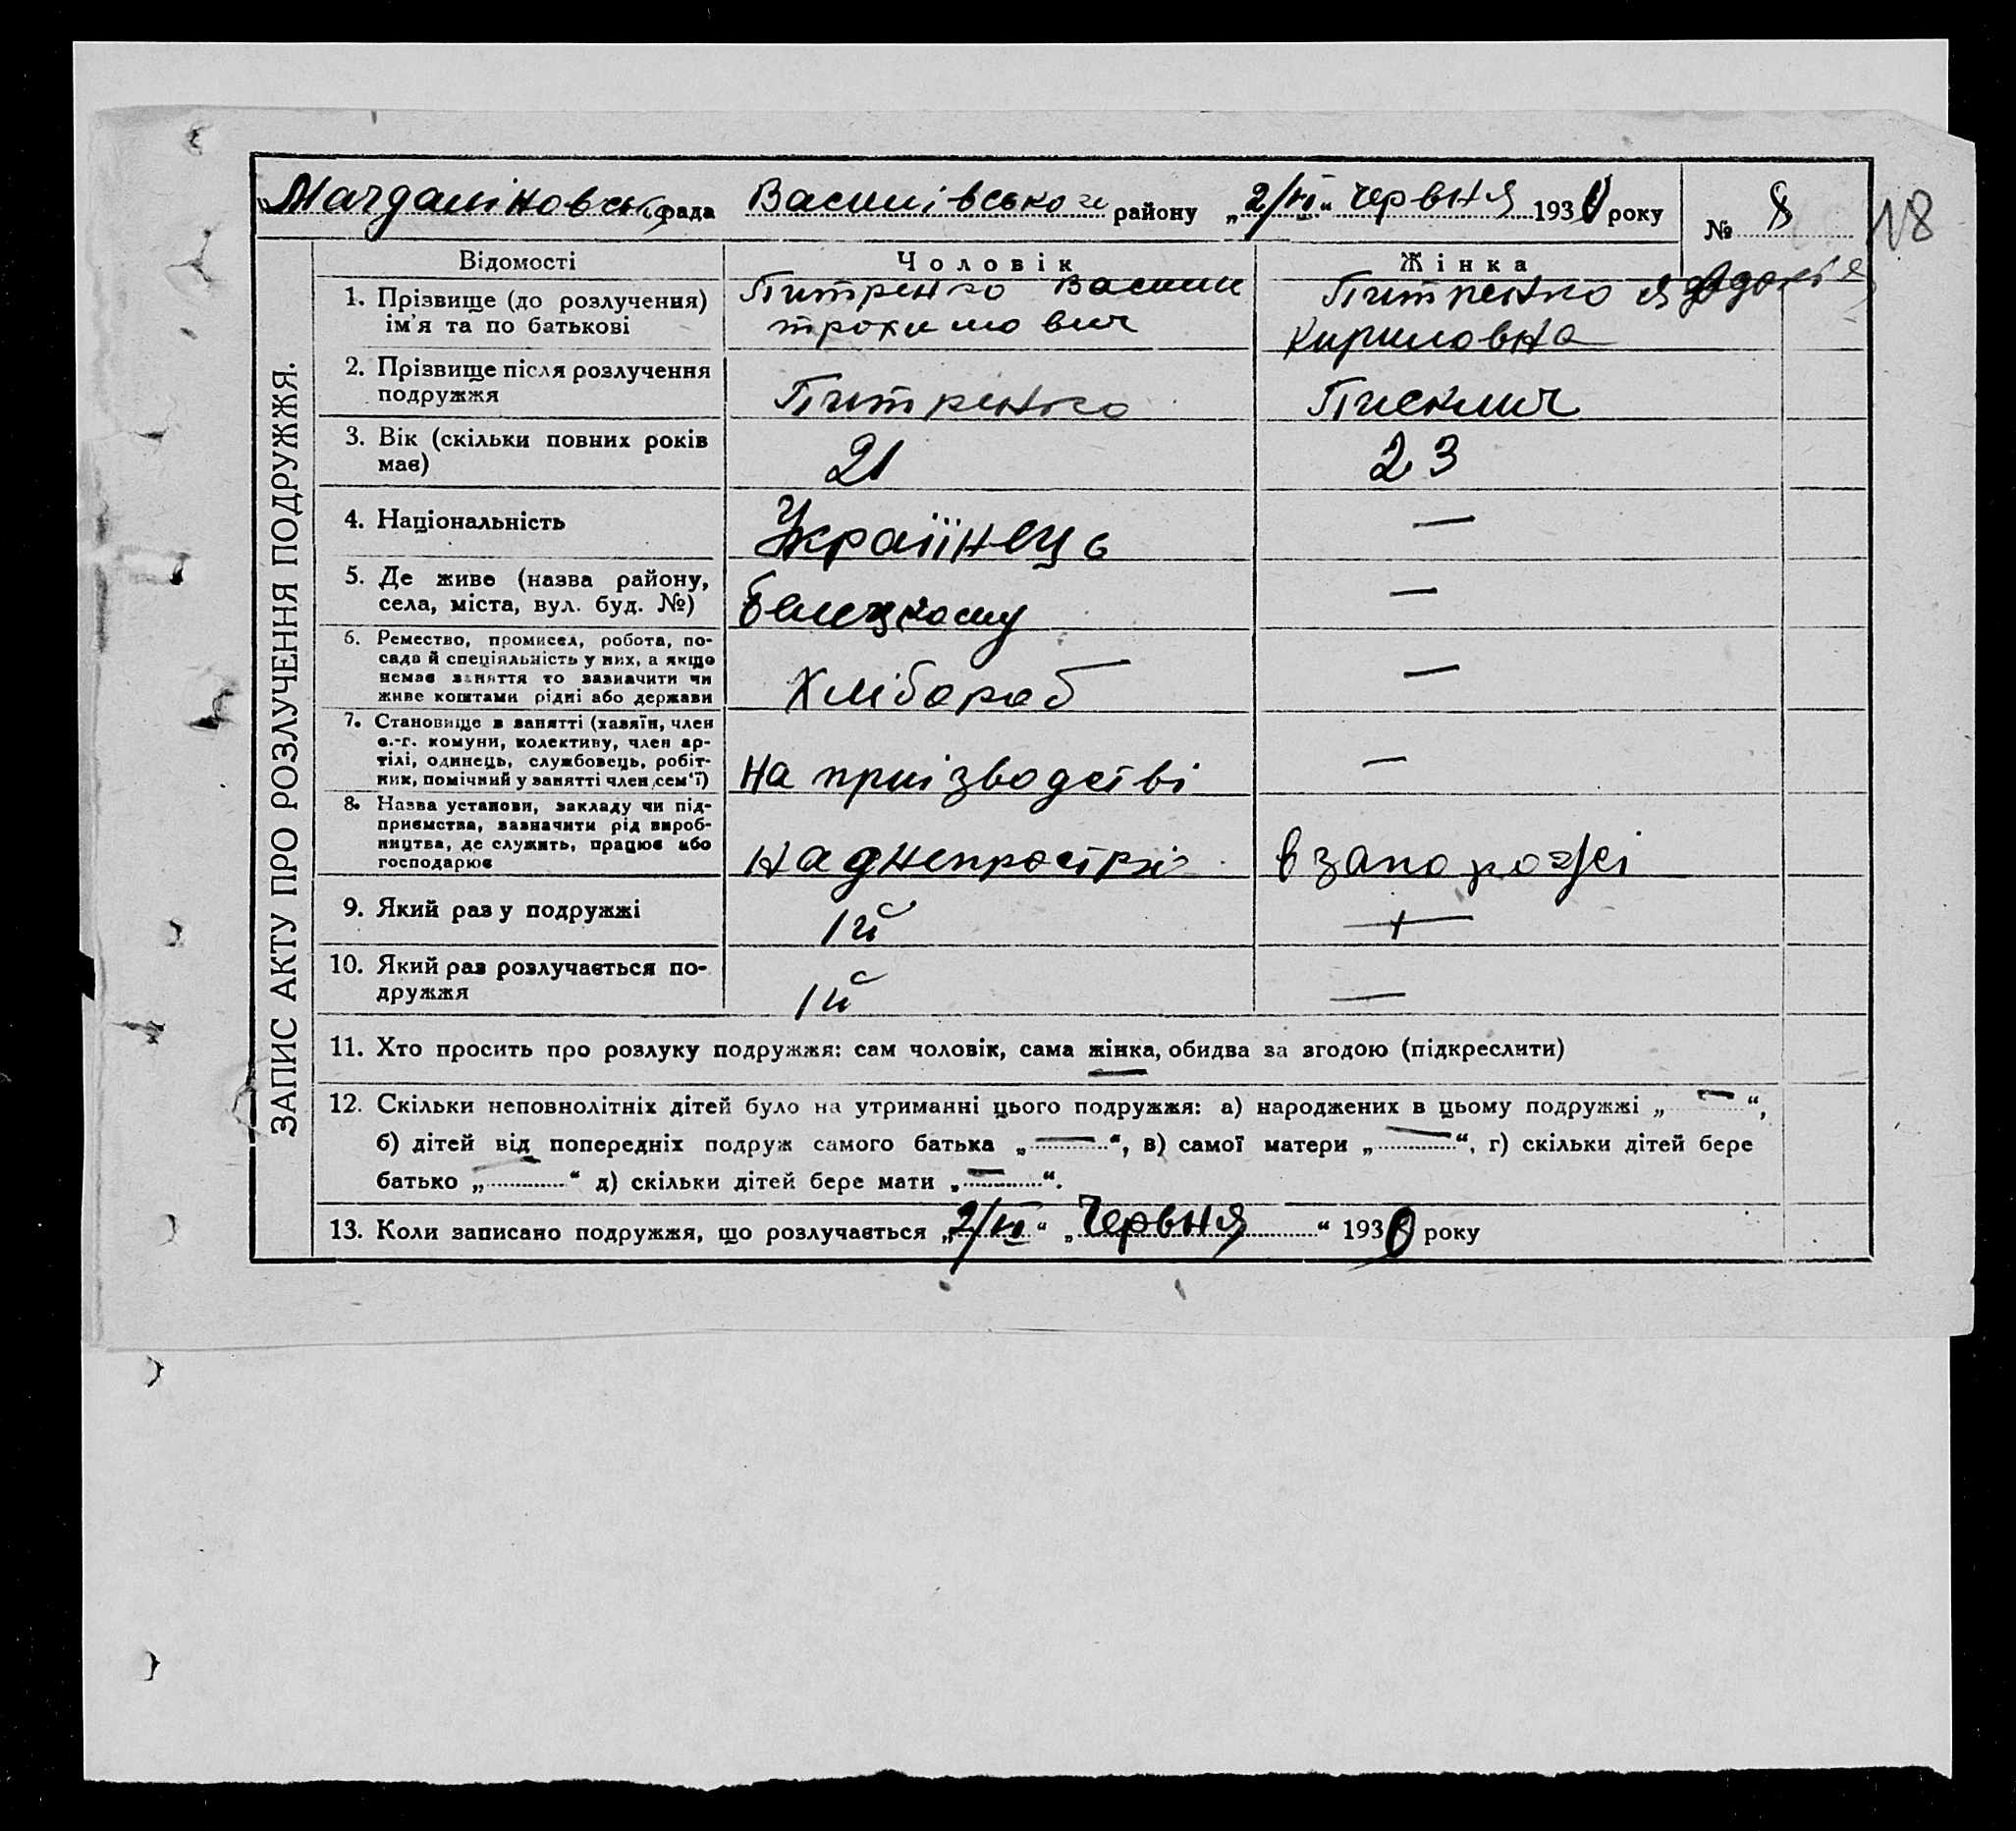 Магдалиновськ рада Василівського району „2/VI“ червня 1930 року № 8
18
ЗАПИС АКТУ ПРО РОЗЛУЧЕННЯ ПОДРУЖЖЯ.
Відомості Чоловік Жінка
1. Прізвище (до розлучення) ім'я та по батькові
Питренко Васили
трохимович
Питренко
Кириловна
2. Прізвище після розлучення подружжя
Питренко
3. Вік (скільки повних років має)
21
23
4. Національність
Украіїнець
—
5. Де живе (назва району, села, міста, вул. буд. №)
—
6. Ремество, промисел, робота, по-
сада й спеціяльність у них, а якщо
немає заняття то зазначити чи
живе коштами рідні або держави
Хлібороб
—
7. Становище в занятті (хазяїн, член
с.-г. комуни, колективу, член ар-
тілі, одинець, службовець, робіт-
ник, помічний у занятті член сем'ї)
на приізводстві
—
8. Назва установи, закладу чи під-
приємства, зазначити рід вироб-
ництва, де служить, працює або
господарює
на днепрострі
в запорожі
9. Який раз у подружжі
1й
10. Який раз розлучається по-
дружжя
1й
—
11. Хто просить про розлуку подружжя: сам чоловік, сама жінка, обидва за згодою (підкреслити)
12. Скільки неповнолітніх дітей було на утриманні цього подружжя: а) народжених в цьому подружжі „—“,
б) дітей від попередніх подруж самого батька „—“, в) самої матери „—“, г) скільки дітей бере
батько „—“ д) скільки дітей бере мати „—“.
13. Коли записано подружжя, що розлучається „2/VI“ „Червня“ 1930 року